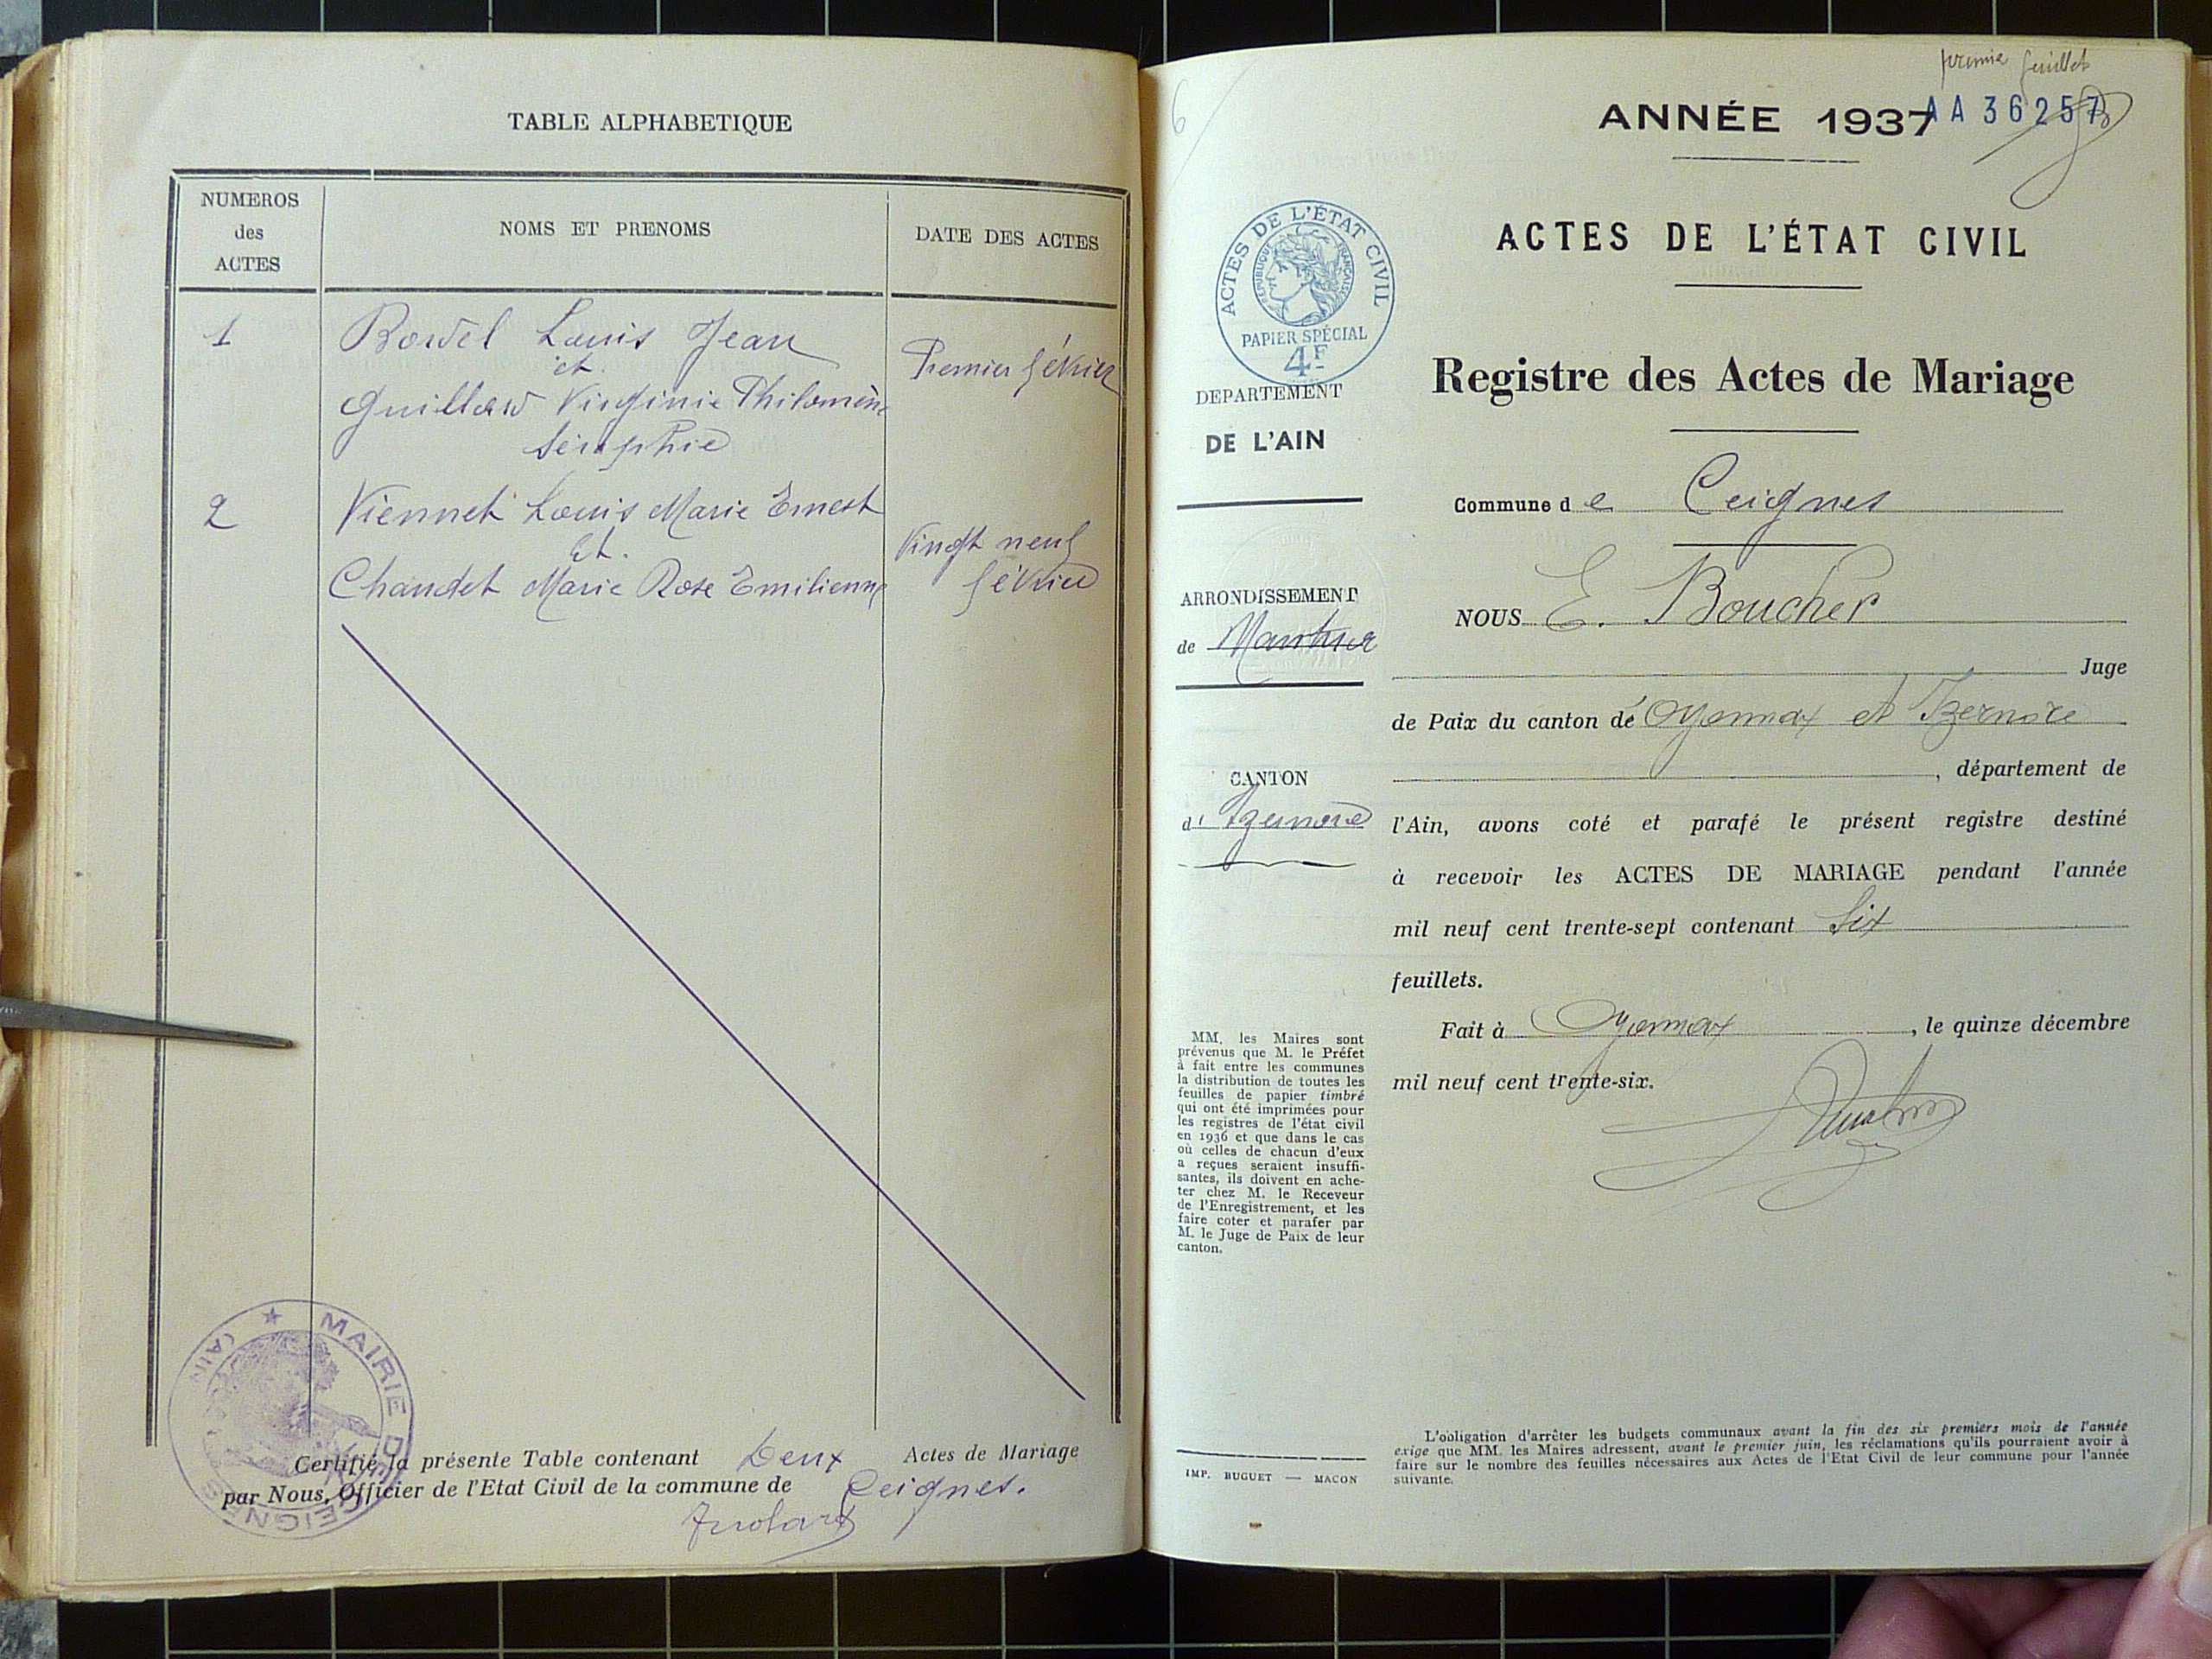 TABLE ALPHABETIQUE
NUMEROS
des
ACTES
NOMS ET PRENOMS
DATE DES ACTES
1
Louis Jean
et
Virginie Philomène
Séraphie
Premier février
2
Viennet Louis Marie Ernest
et.
Chaudet Marie Rose Emilienne
Vingt neuf
février
MAIRIE DE CEIGNES
(AIN)
Certifié la présente Table contenant Deux Actes de Mariage
par Nous, Officier de l'Etat Civil de la commune de Ceignes.
6
premier feuillet
ANNÉE 1937
AA 36257
ACTES DE L'ÉTAT CIVIL
ACTES DE L'ÉTAT CIVIL
RÉPUBLIQUE FRANÇAISE
PAPIER SPÉCIAL
4F
DEPARTEMENT
DE L'AIN
Registre des Actes de Mariage
Commune de Ceignes
ARRONDISSEMENT
de Nantua
NOUS E. Boucher
Juge
de Paix du canton de Oyonnax et Izernore
, département de
CANTON
d' Izernore
l'Ain, avons coté et parafé le présent registre destiné
à recevoir les ACTES DE MARIAGE pendant l'année
mil neuf cent trente-sept contenant Six
feuillets.
Fait à Oyonnax, le quinze décembre
mil neuf cent trente-six.
MM, les Maires sont
prévenus que M. le Préfet
à fait entre les communes
la distribution de toutes les
feuilles de papier timbré
qui ont été imprimées pour
les registres de l'état civil
en 1936 et que dans le cas
où celles de chacun d'eux
a reçues seraient insuffi-
santes, ils doivent en ache-
ter chez M. le Receveur
de l'Enregistrement, et les
faire coter et parafer par
M. le Juge de Paix de leur
canton.
IMP. BUGUET — MACON
L'obligation d'arrêter les budgets communaux avant la fin des six premiers mois de l'année
exige que MM. les Maires adressent, avant le premier juin, les réclamations qu'ils pourraient avoir à
faire sur le nombre des feuilles nécessaires aux Actes de l'Etat Civil de leur commune pour l'année
suivante.